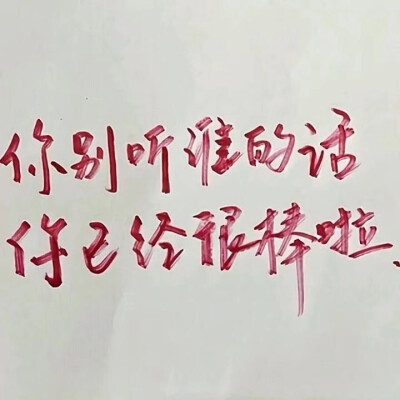 你别听谁的话
你已经很棒啦、